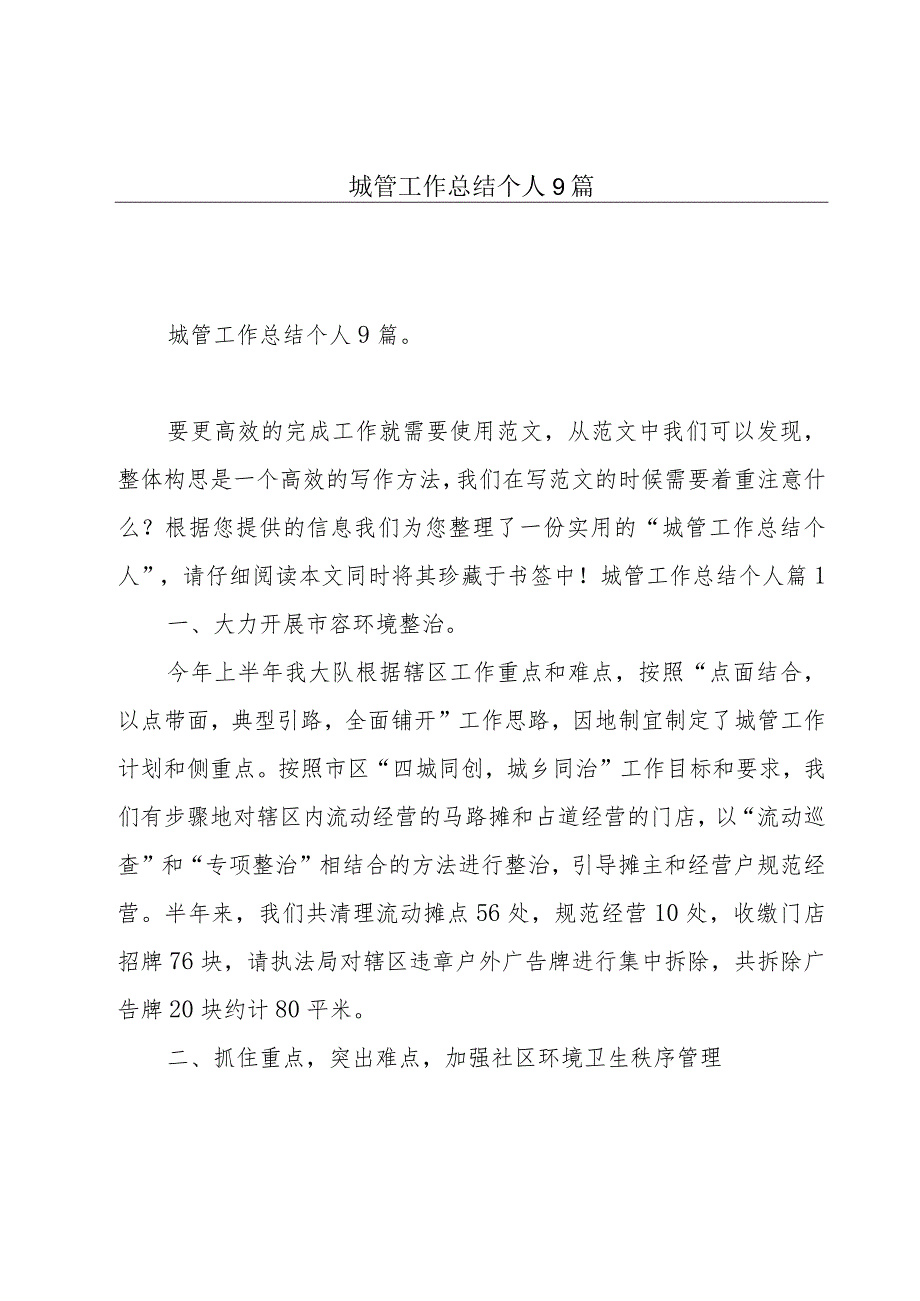 城管工作总结个人9篇
城管工作总结个人9篇。
要更高效的完成工作就需要使用范文，从范文中我们可以发现，
整体构思是一个高效的写作方法，我们在写范文的时候需要着重注意什
么？根据您提供的信息我们为您整理了一份实用的“城管工作总结个
人”，请仔细阅读本文同时将其珍藏于书签中！城管工作总结个人篇1
一、大力开展市容环境整治。
今年上半年我大队根据辖区工作重点和难点，按照“点面结合，
以点带面，典型引路，全面铺开”工作思路，因地制宜制定了城管工作
计划和侧重点。按照市区“四城同创，城乡同治”工作目标和要求，我
们有步骤地对辖区内流动经营的马路摊和占道经营的门店，以“流动巡
查”和“专项整治”相结合的方法进行整治，引导摊主和经营户规范经
营。半年来，我们共清理流动摊点56处，规范经营10处，收缴门店
招牌76块，请执法局对辖区违章户外广告牌进行集中拆除，共拆除广
告牌20块约计80平米。
二、抓住重点，突出难点，加强社区环境卫生秩序管理